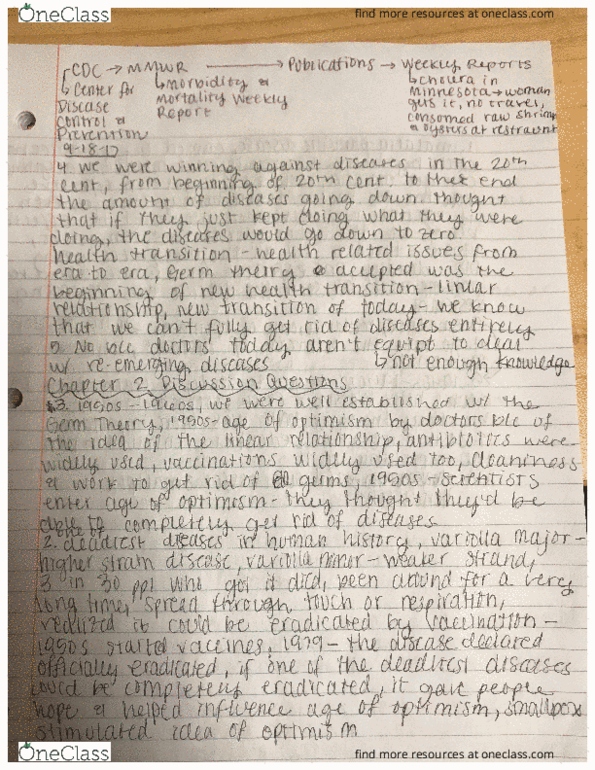 OneClass
find more resources at oneclass.com
CDC → MMWR → Publications → Weekly Reports
↳ Center for ↳ Morbidity & ↳ cholera in
Disease Mortality Weekly Minnesota → woman
Control & Report gus it, no travel,
Prevention consomed raw shrimp
& oysters at restraunt
9-18-17
4 we were winning against diseases in the 20th
cent, from beginning of 20th cent. to ther end
the amount of diseases going down. thought
that if they just kept doing what they were
doing, the diseases would go down to zero
health transition - health related issues from
era to era, Germ therry accepted was the
beginning of new health transition - linear
relationship, new transition of today - we know
that we can't fully get rid of diseases entirely
5. No b/c doctors today aren't equipt to deal
w/ re-emerging diseases ↳ not enough knowledge
Chapter 2 Discussion Questions
3. 1950s - 1960s, we were well established w/ the
Germ Theory, 1950s - age of optimism by doctors b/c of
the idea of the linear relationship, antibiotics were
widely used, vaccinations widely used too, cleaniness
& work to get rid of germs, 1950s - scientists
enter age of optimism - they thought they'd be
able to completely get rid of diseases
2. one of deadliest diseases in human history, variola major -
higher strain disease, variola minor - weaker strand,
3 in 30 ppl who got it died, been around for a very
long time, spread through touch or respiration,
realized it could be eradicated by vaccination -
1950s started vaccines, 1979 - the disease declared
officially eradicated, if one of the deadliest diseases
could be completely eradicated, it gave people
hope & helped influence age of optimism, smallpox
stimulated idea of optimism
OneClass
find more resources at oneclass.com